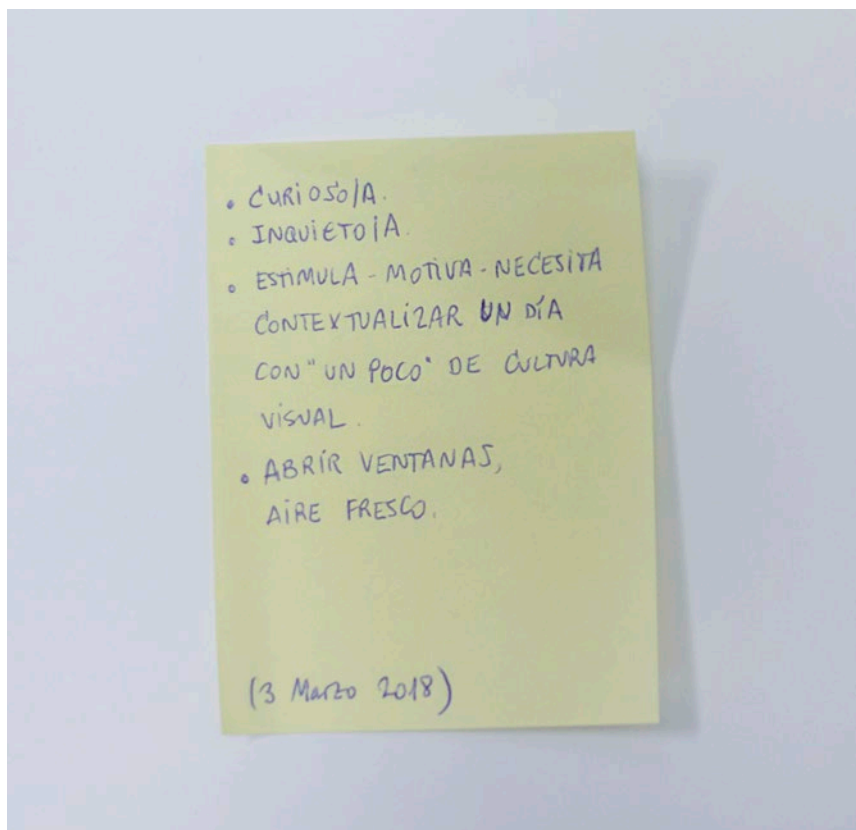 • CURIOSO/A.
• INQUIETO/A.
• ESTIMULA - MOTIVA - NECESITA
CONTEXTUALIZAR UN DÍA
CON "UN POCO" DE CULTURA
VISUAL.
• ABRIR VENTANAS,
AIRE FRESCO.
(3 Marzo 2018)